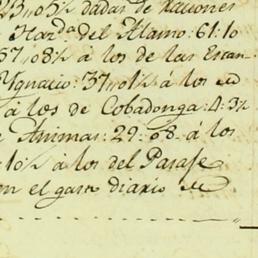 23,,05½ dadas de raciones
Haz.da del Alamo: 61:10
57,,08½ á los de las Estan-
Ygnacio: 37,,01½ á los
á los de Cobadonga: 4:3½
Animas: 29:08 á los
10½ á los del Parage
en el gasto diario